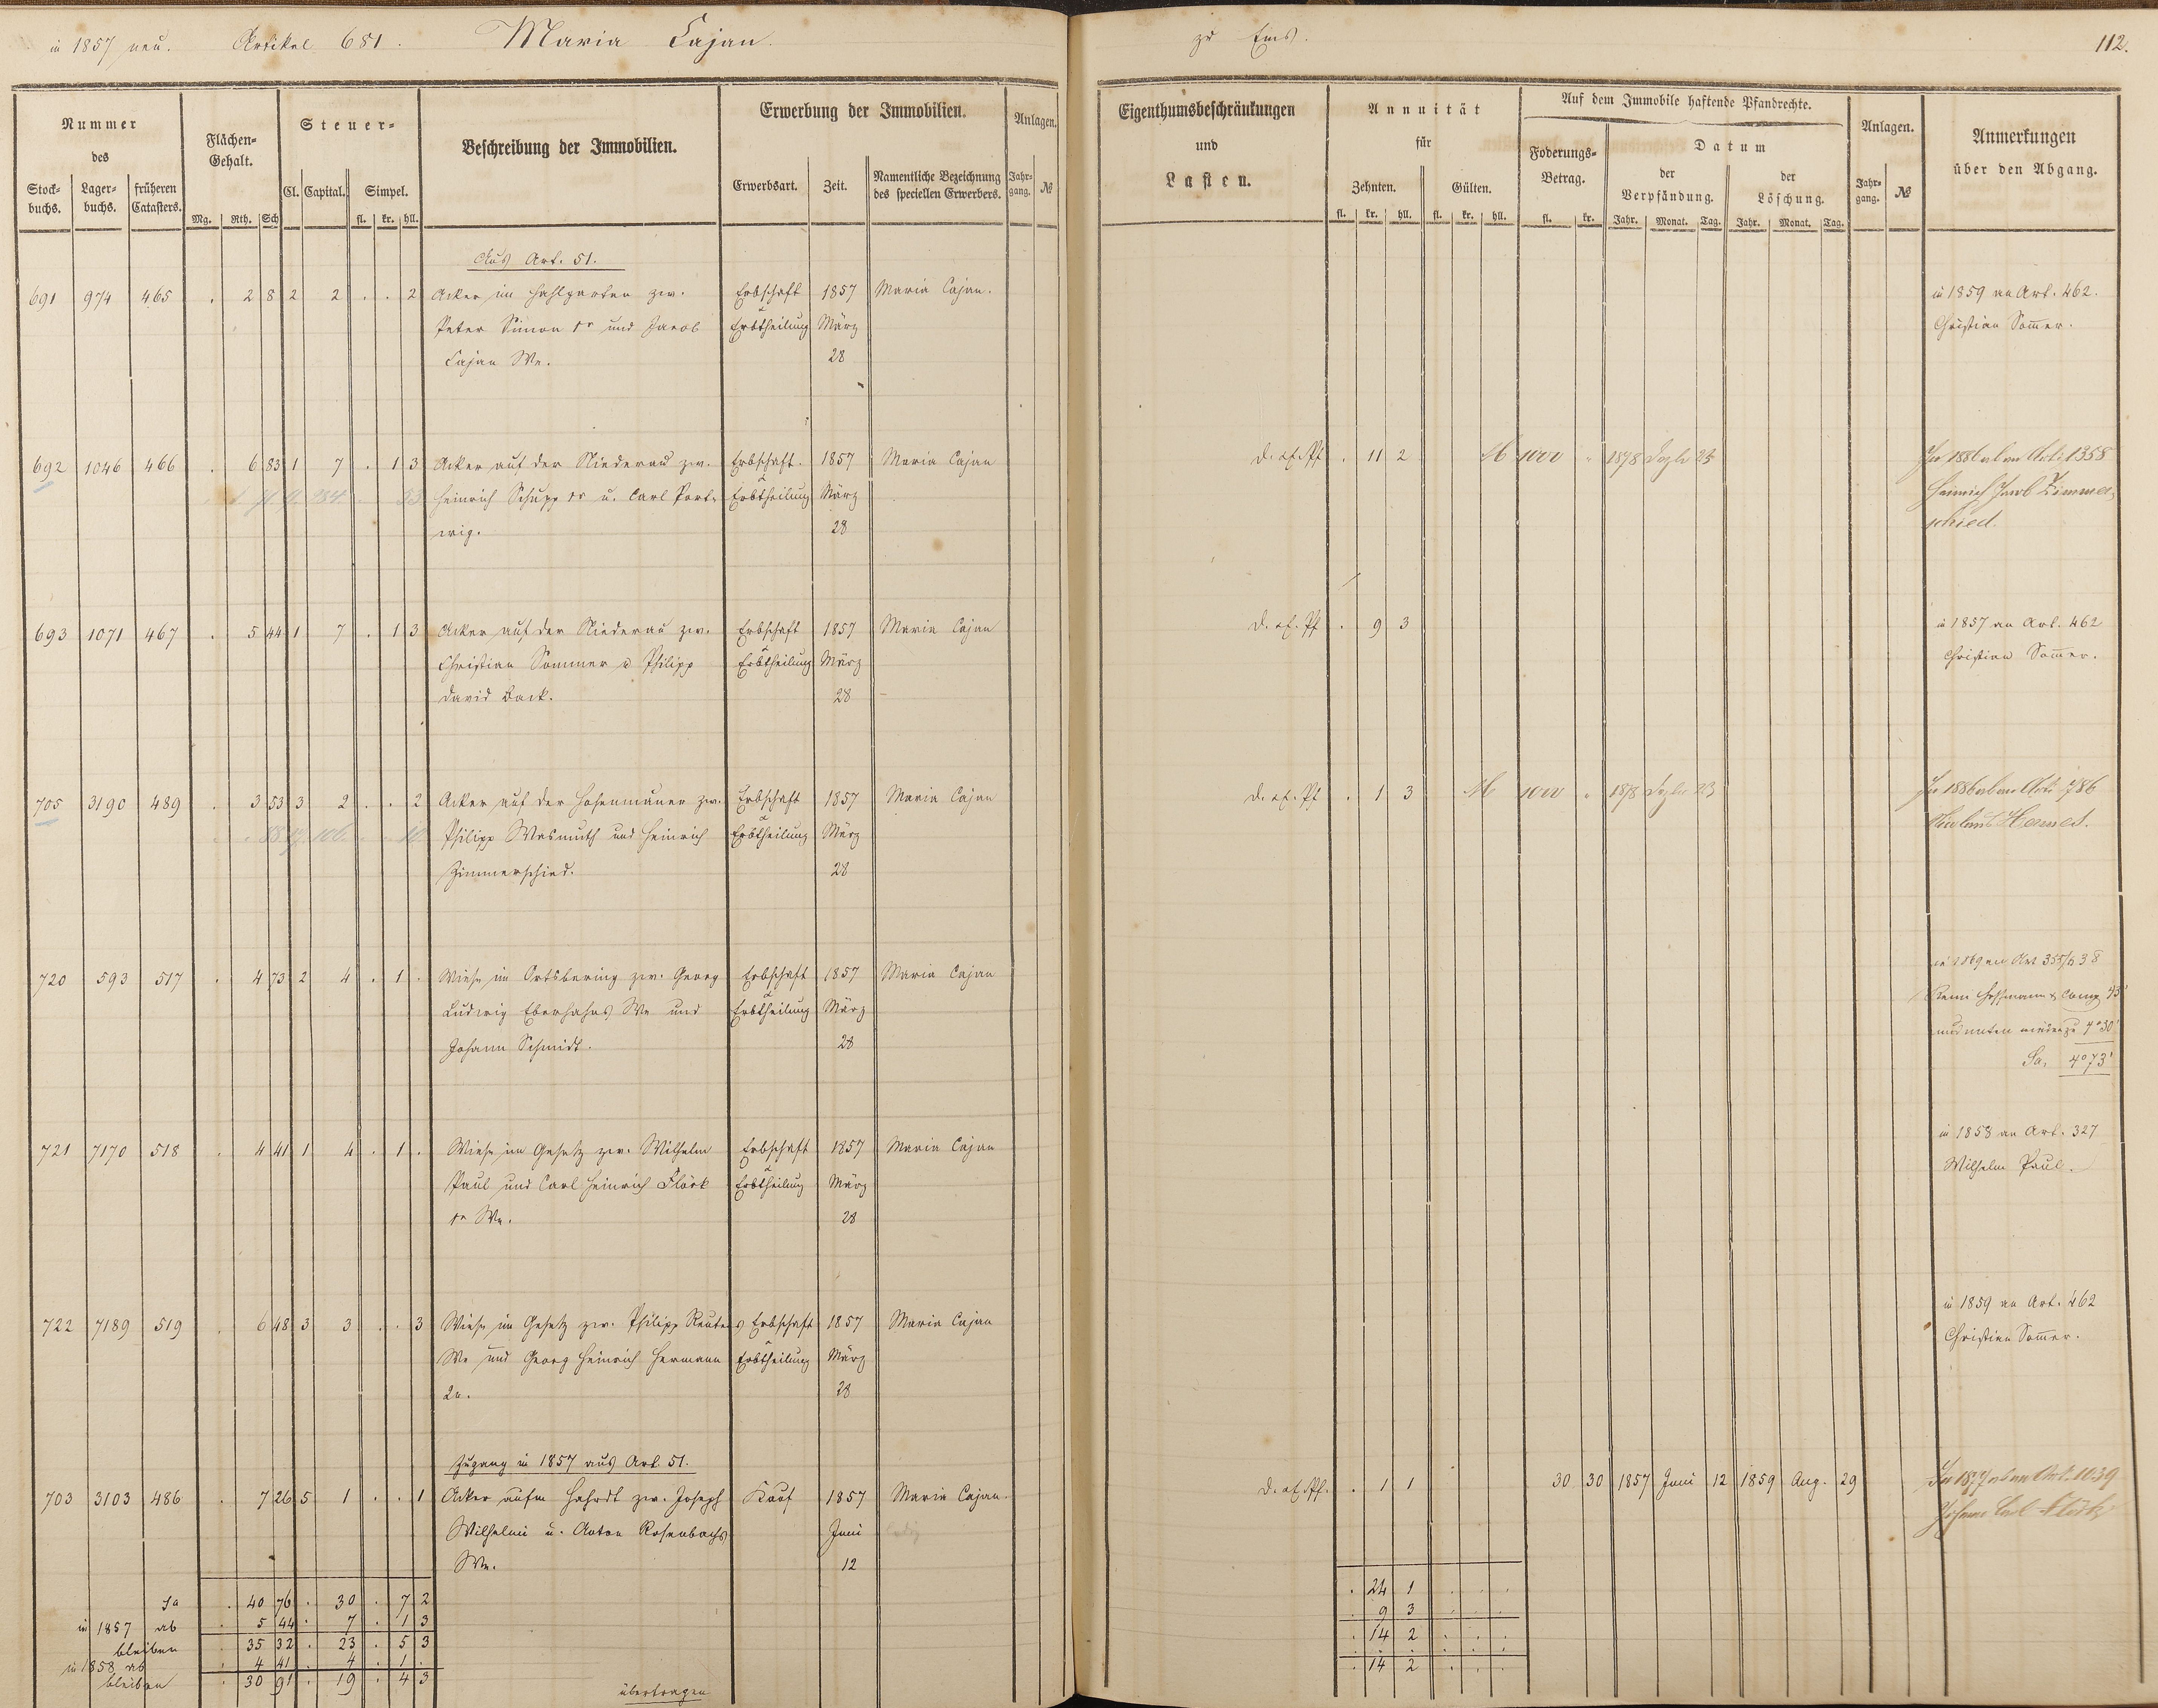 in 1857 neu. Artikel 681. Maria Cajan. zu Ems. 112.
Nummer des
Stock-buchs. Lager-buchs. früheren Catasters.
Flächen-Gehalt.
Mg. Rth. Sch
Steuer-
Cl. Capital. Simpel.
fl. kr. hll.
Beschreibung der Immobilien.
Erwerbung der Immobilien.
Erwerbsart. Zeit. Namentliche Bezeichnung des speciellen Erwerbers.
Anlagen.
Jahr-gang. №
Eigenthumsbeschränkungen
und
Lasten.
Annuität
für
Zehnten. Gülten.
fl. kr. hll. fl. kr. hll.
Auf dem Immobile haftende Pfandrechte.
Foderungs-Betrag.
fl. kr.
Datum
der Verpfändung. der Löschung.
Jahr. Monat. Tag. Jahr. Monat. Tag.
Anlagen.
Jahr-gang. №
Anmerkungen
über den Abgang.
Aus Art. 51.
691 974 465 . 2 8 2 2 . . 2 Acker im Hahlgarten zw. Erbschaft 1857 Maria Cajan. in 1859 an Art. 462.
Peter Simon 1r und Jacob Erbtheilung März Christian Sommer.
Cajan We. 28
692 1046 466 . 6 83 1 7 . 1 3 Acker auf der Niederau zw. Erbschaft. 1857 Maria Cajan d. ef. Pf . 11 2 M 1000 1878 Dezbr 23 In 1886 ab an Art. 1358
Heinrich Schupp 1r u. Carl Port- Erbtheilung März Heinrich Jacob Zimmer-
wig. 28 schied.
693 1071 467 . 5 44 1 7 . 1 3 Acker auf der Niederau zw. Erbschaft 1857 Maria Cajan d. ef. Pf . 9 3 in 1857 an Art. 462
Christian Sommer u Philipp Erbtheilung März Christian Sommer.
David Back. 28
705 3190 489 . 3 53 3 2 . . 2 Acker auf der Hosenmauer zw. Erbschaft 1857 Maria Cajan d. ef. Pf . 1 3 M 1000 1878 Dezbr 23 In 1886 ab an Art. 786
Philipp Wasmuth und Heinrich Erbtheilung März Hermes.
Zimmerschied. 28
720 593 517 . 4 73 2 4 . 1 . Wiese im Ortsbering zw. Georg Erbschaft 1857 Maria Cajan in 1869 an Art 355/138
Ludwig Eberhahns We und Erbtheilung März Remi Hoffmann & Comp. 43'
Johann Schmidt. 28 und unten wieder zu 4°30'
Sa. 4°73'
721 7170 518 . 4 41 1 4 . 1 . Wiese im Gesetz zw. Wilhelm Erbschaft 1857 Maria Cajan in 1858 an Art. 327
Paul und Carl Heinrich Flöck Erbtheilung März Wilhelm Paul.
1r We. 28
722 7189 519 . 6 48 3 3 . . 3 Wiese im Gesetz zw. Philipp Reuters Erbschaft 1857 Maria Cajan in 1859 an Art. 462
We und Georg Heinrich Hermann Erbtheilung März Christian Sommer.
2r. 28
Zugang in 1857 aus Art. 51.
703 3103 486 . 7 26 5 1 . . 1 Acker aufm Hahrdt zw. Joseph Kauf 1857 Maria Cajan. d. ef. Pf. . 1 1 30 30 1857 Juni 12 1859 Aug. 29 In 1877 ab an Art. 1039
Wilhelmi u. Anton Rosenbachs Juni ledig Johann Carl Flöck
We. 12
Sa . 40 76 . 30 . 7 2 . 24 1
in 1857 ab . 5 44 . 7 . 1 3 . 9 3
bleiben . 35 32 . 23 . 5 3 . 14 2
in 1858 ab . 4 41 . 4 . 1 .
bleiben . 30 91 . 19 . 4 3 . 14 2
übertragen